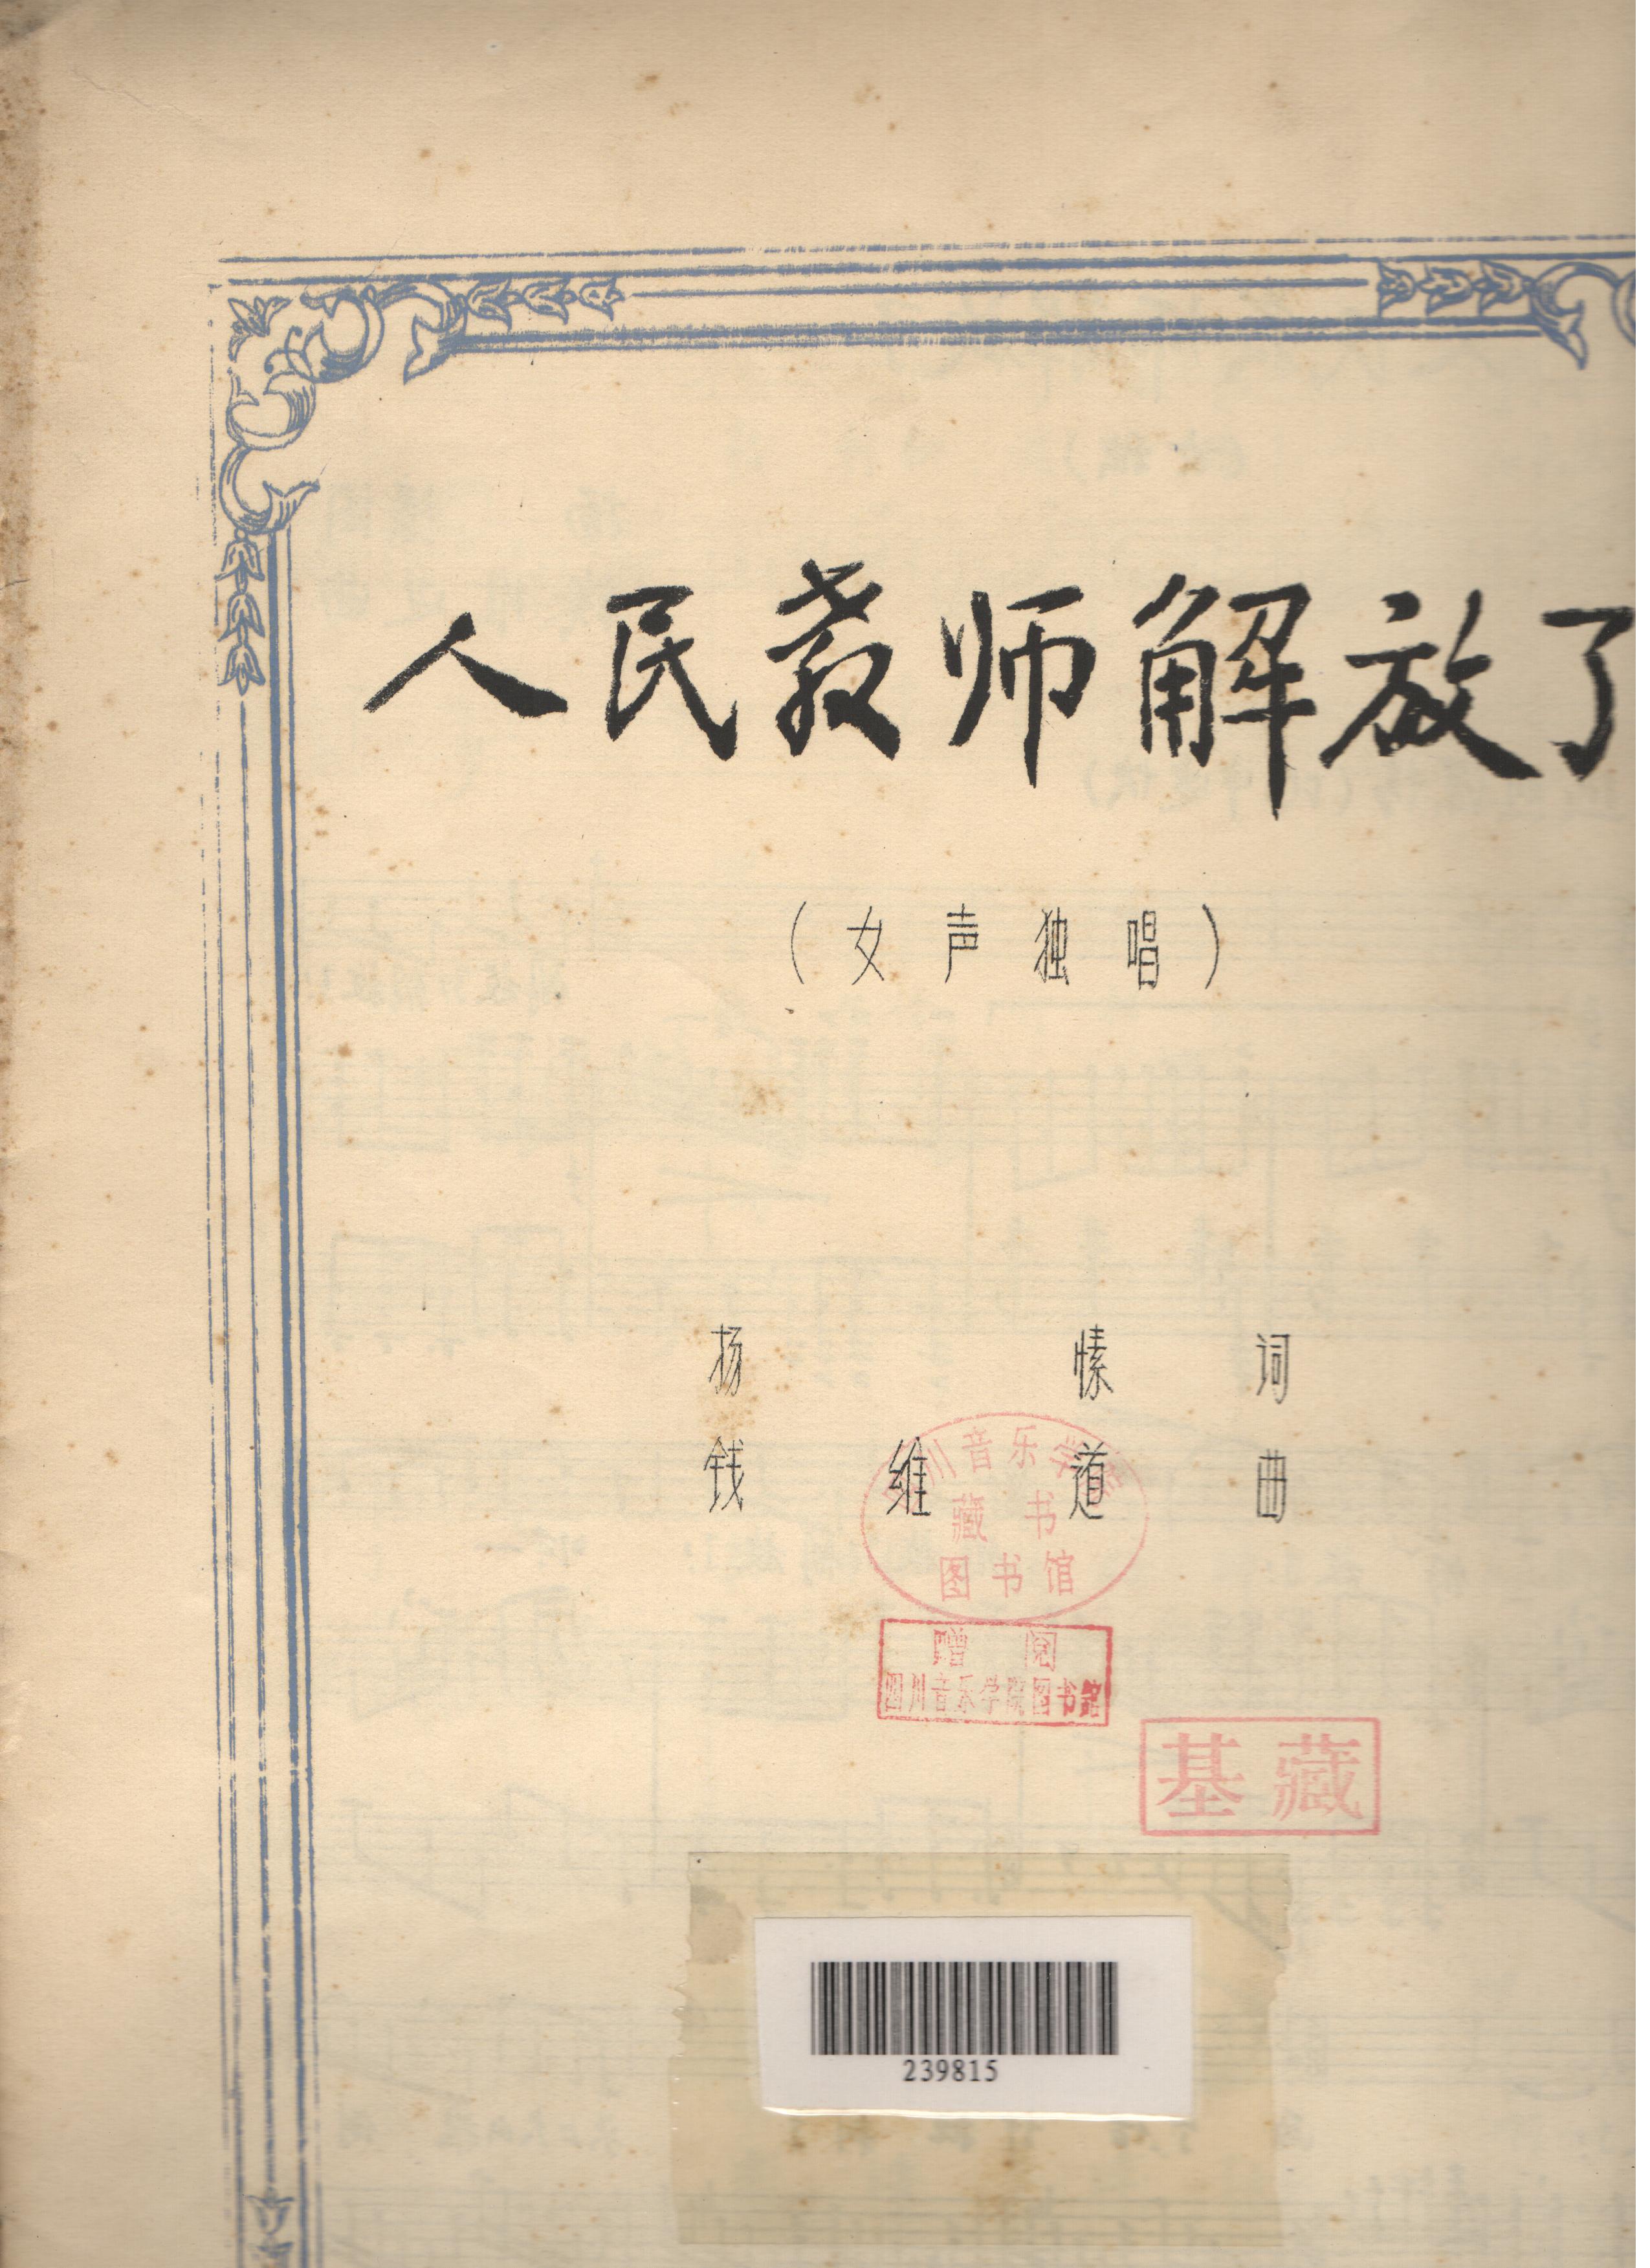 人民教师解放了
（女声独唱）
扬 愫 词
钱 维 道 曲
四川音乐学院
藏书
图书馆
赠阅
四川音乐学院图书馆
基藏
239815